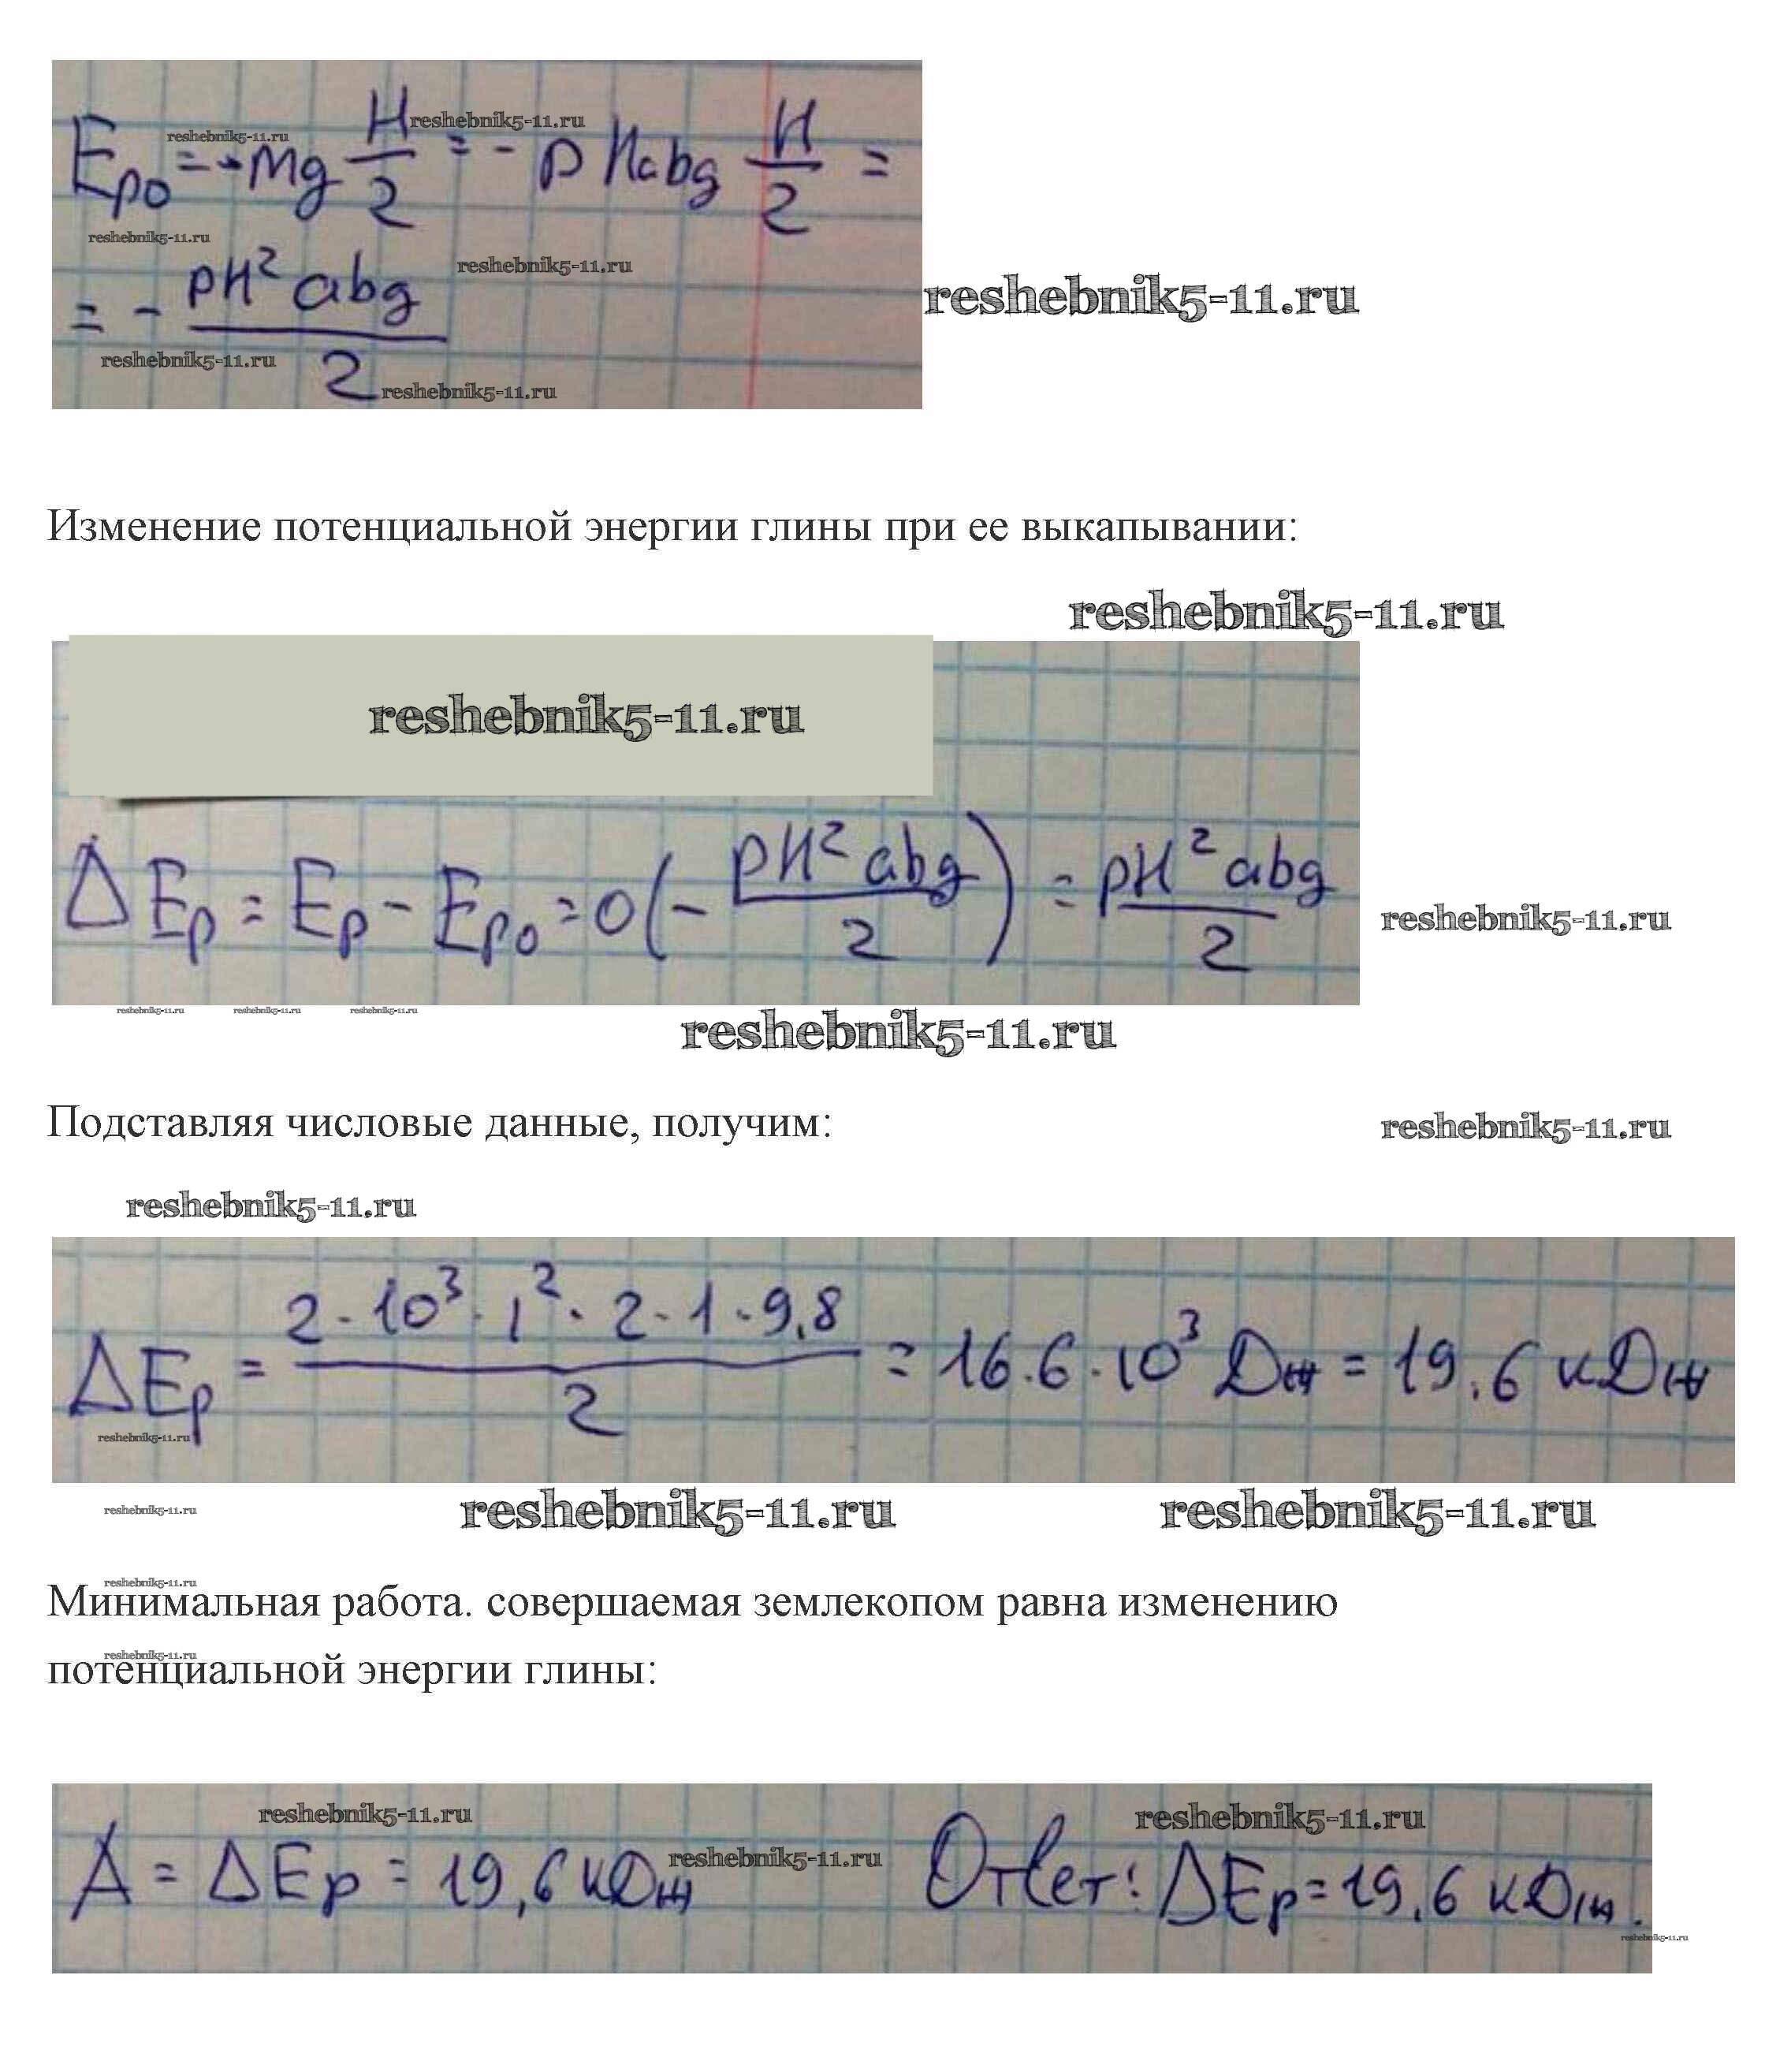 reshebnik5-11.ru
reshebnik5-11.ru
Ep0 = -Mg H/2 = - pHabg H/2 =
reshebnik5-11.ru
reshebnik5-11.ru
= - pH² abg / 2
reshebnik5-11.ru
reshebnik5-11.ru
reshebnik5-11.ru
Изменение потенциальной энергии глины при ее выкапывании:
reshebnik5-11.ru
reshebnik5-11.ru
ΔEp = Ep - Ep0 = 0(- pH² abg / 2) = pH² abg / 2
reshebnik5-11.ru
reshebnik5-11.ru reshebnik5-11.ru reshebnik5-11.ru
reshebnik5-11.ru
Подставляя числовые данные, получим:
reshebnik5-11.ru
reshebnik5-11.ru
ΔEp = 2·10³·1²·2·1·9,8 / 2 = 16.6·10³ Дж = 19.6 кДж
reshebnik5-11.ru
reshebnik5-11.ru reshebnik5-11.ru reshebnik5-11.ru
reshebnik5-11.ru
Минимальная работа. совершаемая землекопом равна изменению
reshebnik5-11.ru
потенциальной энергии глины:
reshebnik5-11.ru
reshebnik5-11.ru
reshebnik5-11.ru
A = ΔEp = 19,6 кДж Ответ: ΔEp = 19.6 кДж.
reshebnik5-11.ru